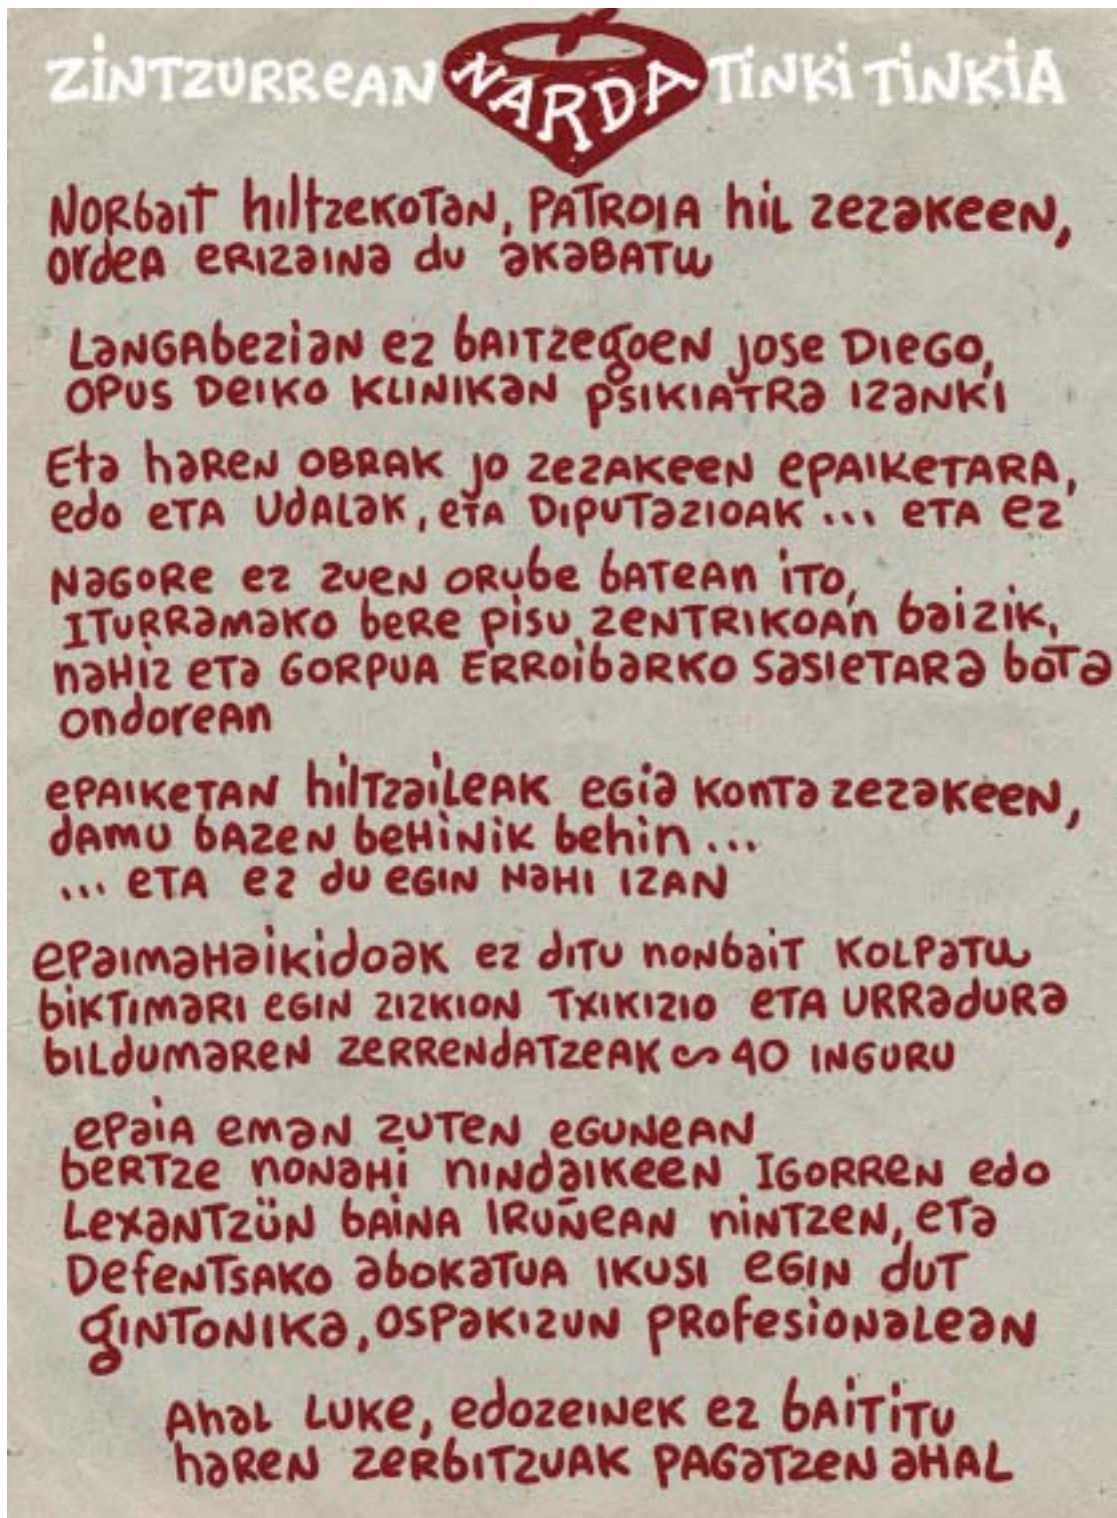 ZINTZURREAN NARDA TINKI TINKIA
NORbaiT hiltzeKOTaN, PATROIA hil zezaKeeN,
ordea eRIZaINa du aKaBATU
LaNGAbeziaN ez bAITZegoeN jOSE DIEGO,
OPUS DEIKO KLINIKaN PSIKIATRa IZaNKI
Eta haReN OBRAK jo ZEZAKEEN ePAIKeTARA,
edo eTA UdALaK, eTA DIPUTaZIOAK ... eTA ez
NaGORe ez ZUeN ORUbe bATeAn iTO,
ITURRaMaKO beRe pisu ZeNTRIKOAn baizik,
naHiz eTa GORPUA ERROibaRKO SaSIeTARa boTa
ondoreAn
ePAIKeTAN hilTZaiLeAK eGia KONTa zezaKeeN,
dAMU bAZeN beHiNiK behin ...
... eTA ez du eGIN NaHI IZAN
ePaimaHaiKidoaK ez diTU nonbaiT KOLPaTU
biKTIMaRI eGIN ZIZKION TXIKIZIO eTA URRaduRa
bILdumaReN ZeRReNdATZeAK ~ 40 INGURU
ePaiA emaN ZUTeN eGUNeAN
beRTZe nONaHi nINdaIKeeN IGORReN edo
LexaNTZÜN bAiNA IRUÑeAN niNTZeN, eTa
DefeNTSAKO aboKaTUA IKUSI eGIN dUT
giNTONIKa, OSPaKIZUN PROfesiONaLeaN
AhaL LUKe, edozeINeK ez bAITiTU
haReN ZeRbITZUAK PAGaTZeN aHAL